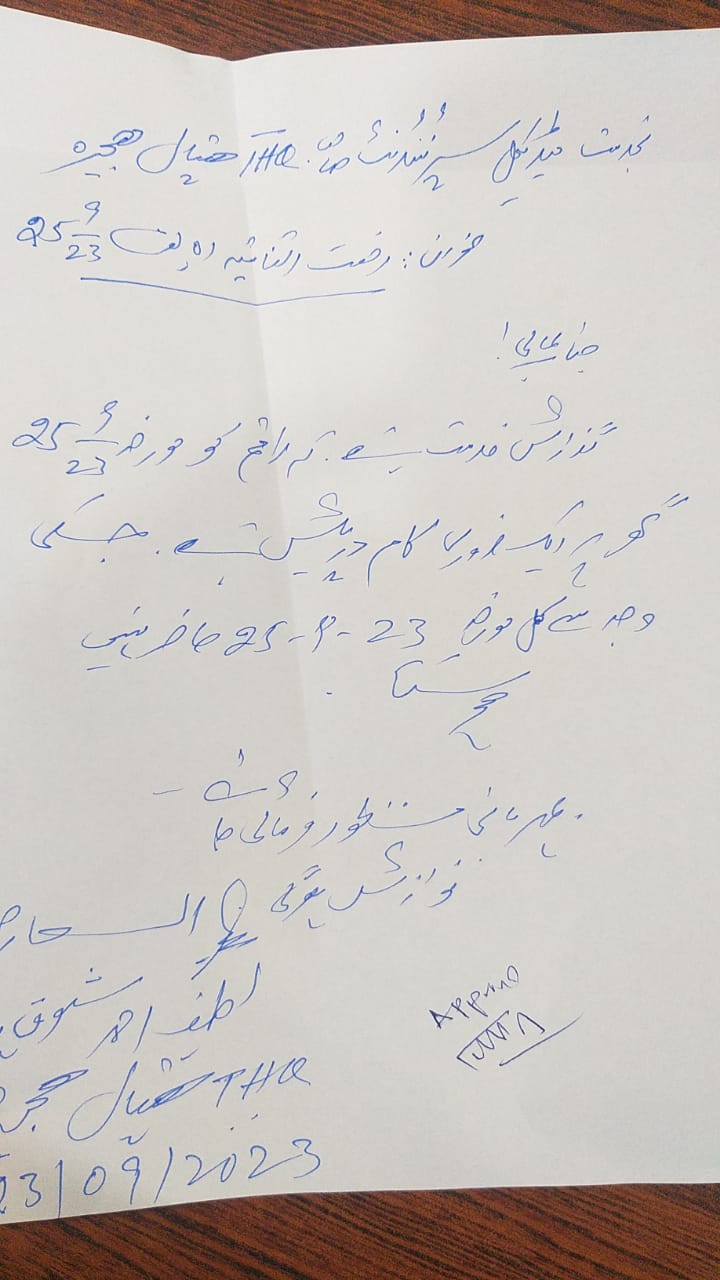 بخدمت میڈیکل سپرنٹنڈنٹ صاحب THQ ہسپتال ہجیرہ
عنوان: رخصت اتفاقیہ 25/9/23
جناب عالی!
گذارش خدمت ہے۔ کہ راقم کو مورخہ 25/9/23
گھر پر ایک ضروری کام درپیش ہے۔ جسکی
وجہ سے کل مورخہ 25-9-23 حاضر نہیں
ہو سکتا۔
مہربانی منظور فرمائی جائے۔
نوازش ہوگی
العارض
لطیف احمد
THQ ہسپتال ہجیرہ
23/09/2023